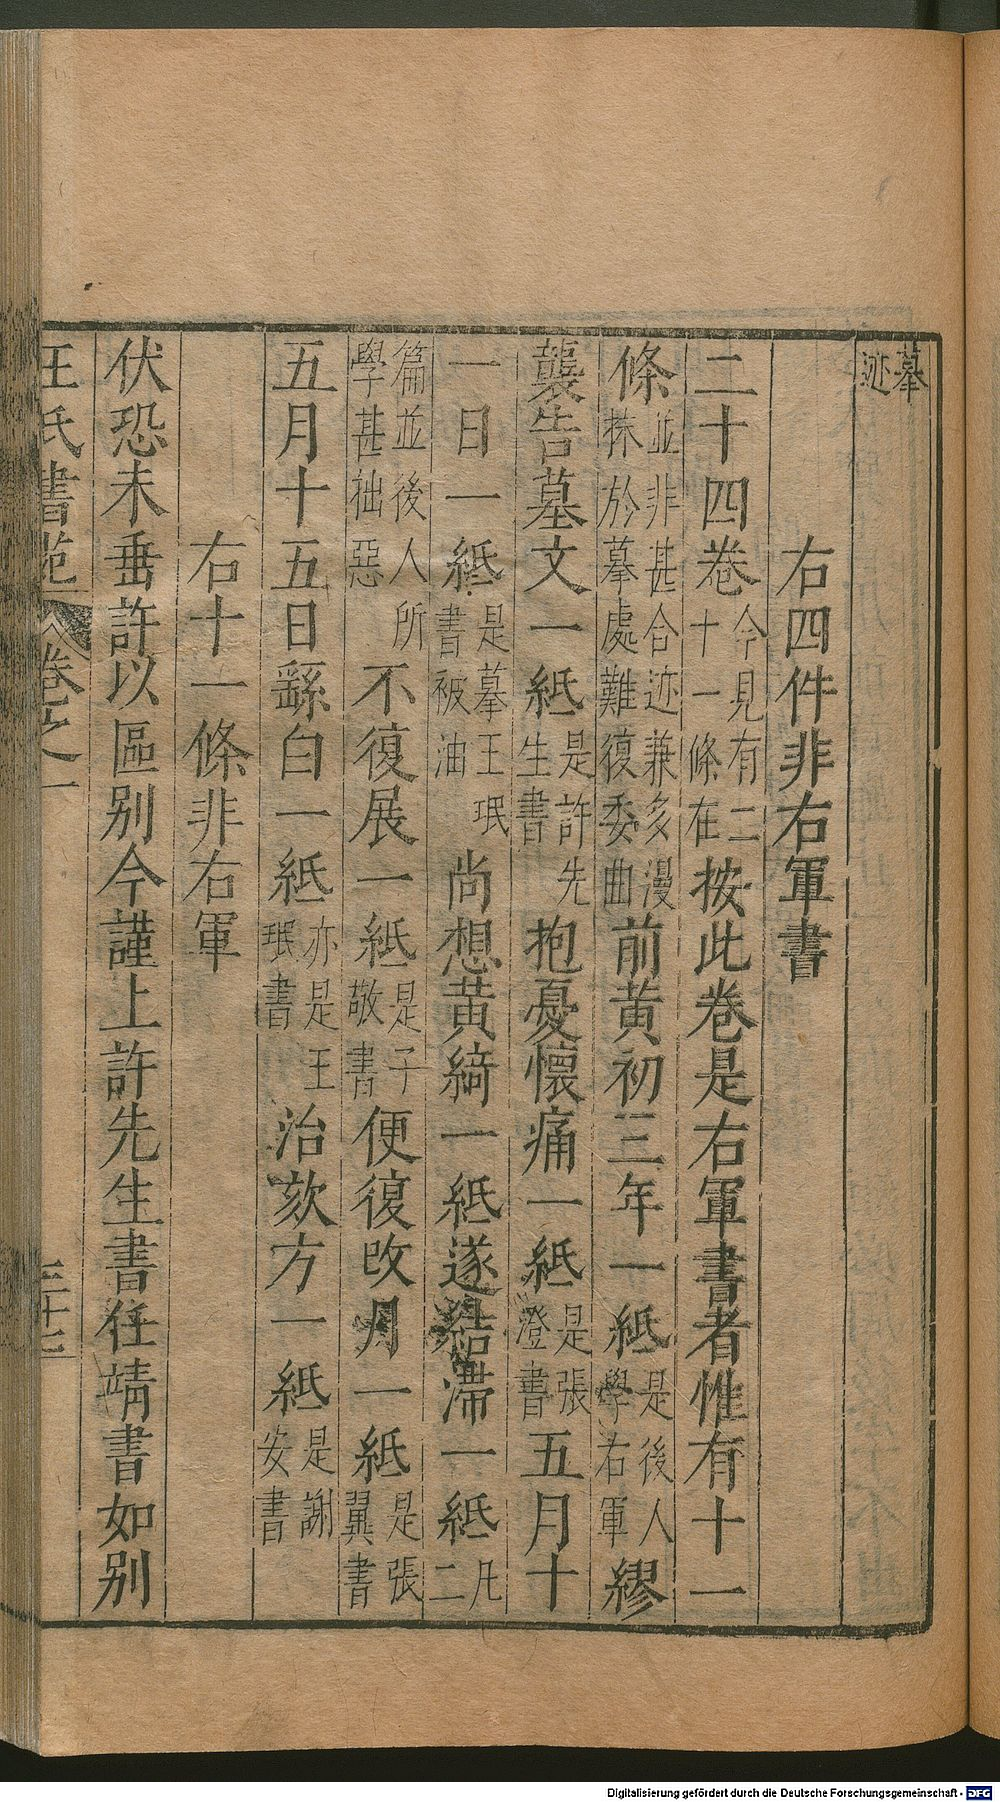 摹迹
右四件非右軍書
二十四卷今見有二十一條在按此卷是右軍書者惟有十一
條並非甚合迹兼多漫抹於摹處難復委曲前黃初三年一紙是後人學右軍繆
襲告墓文一紙是許先生書抱憂懷痛一紙是張澄書五月十
一日一紙是摹王珉書被油尚想黃綺一紙遂結滯一紙凡二
篇並後人所學甚拙惡不復展一紙是子敬書便復改月一紙是張翼書
五月十五日繇白一紙亦是王珉書治欬方一紙是謝安書
右十一條非右軍
伏恐未垂許以區别今謹上許先生書任靖書如别
王氏書苑 卷之一
Digitalisierung gefördert durch die Deutsche Forschungsgemeinschaft - DFG